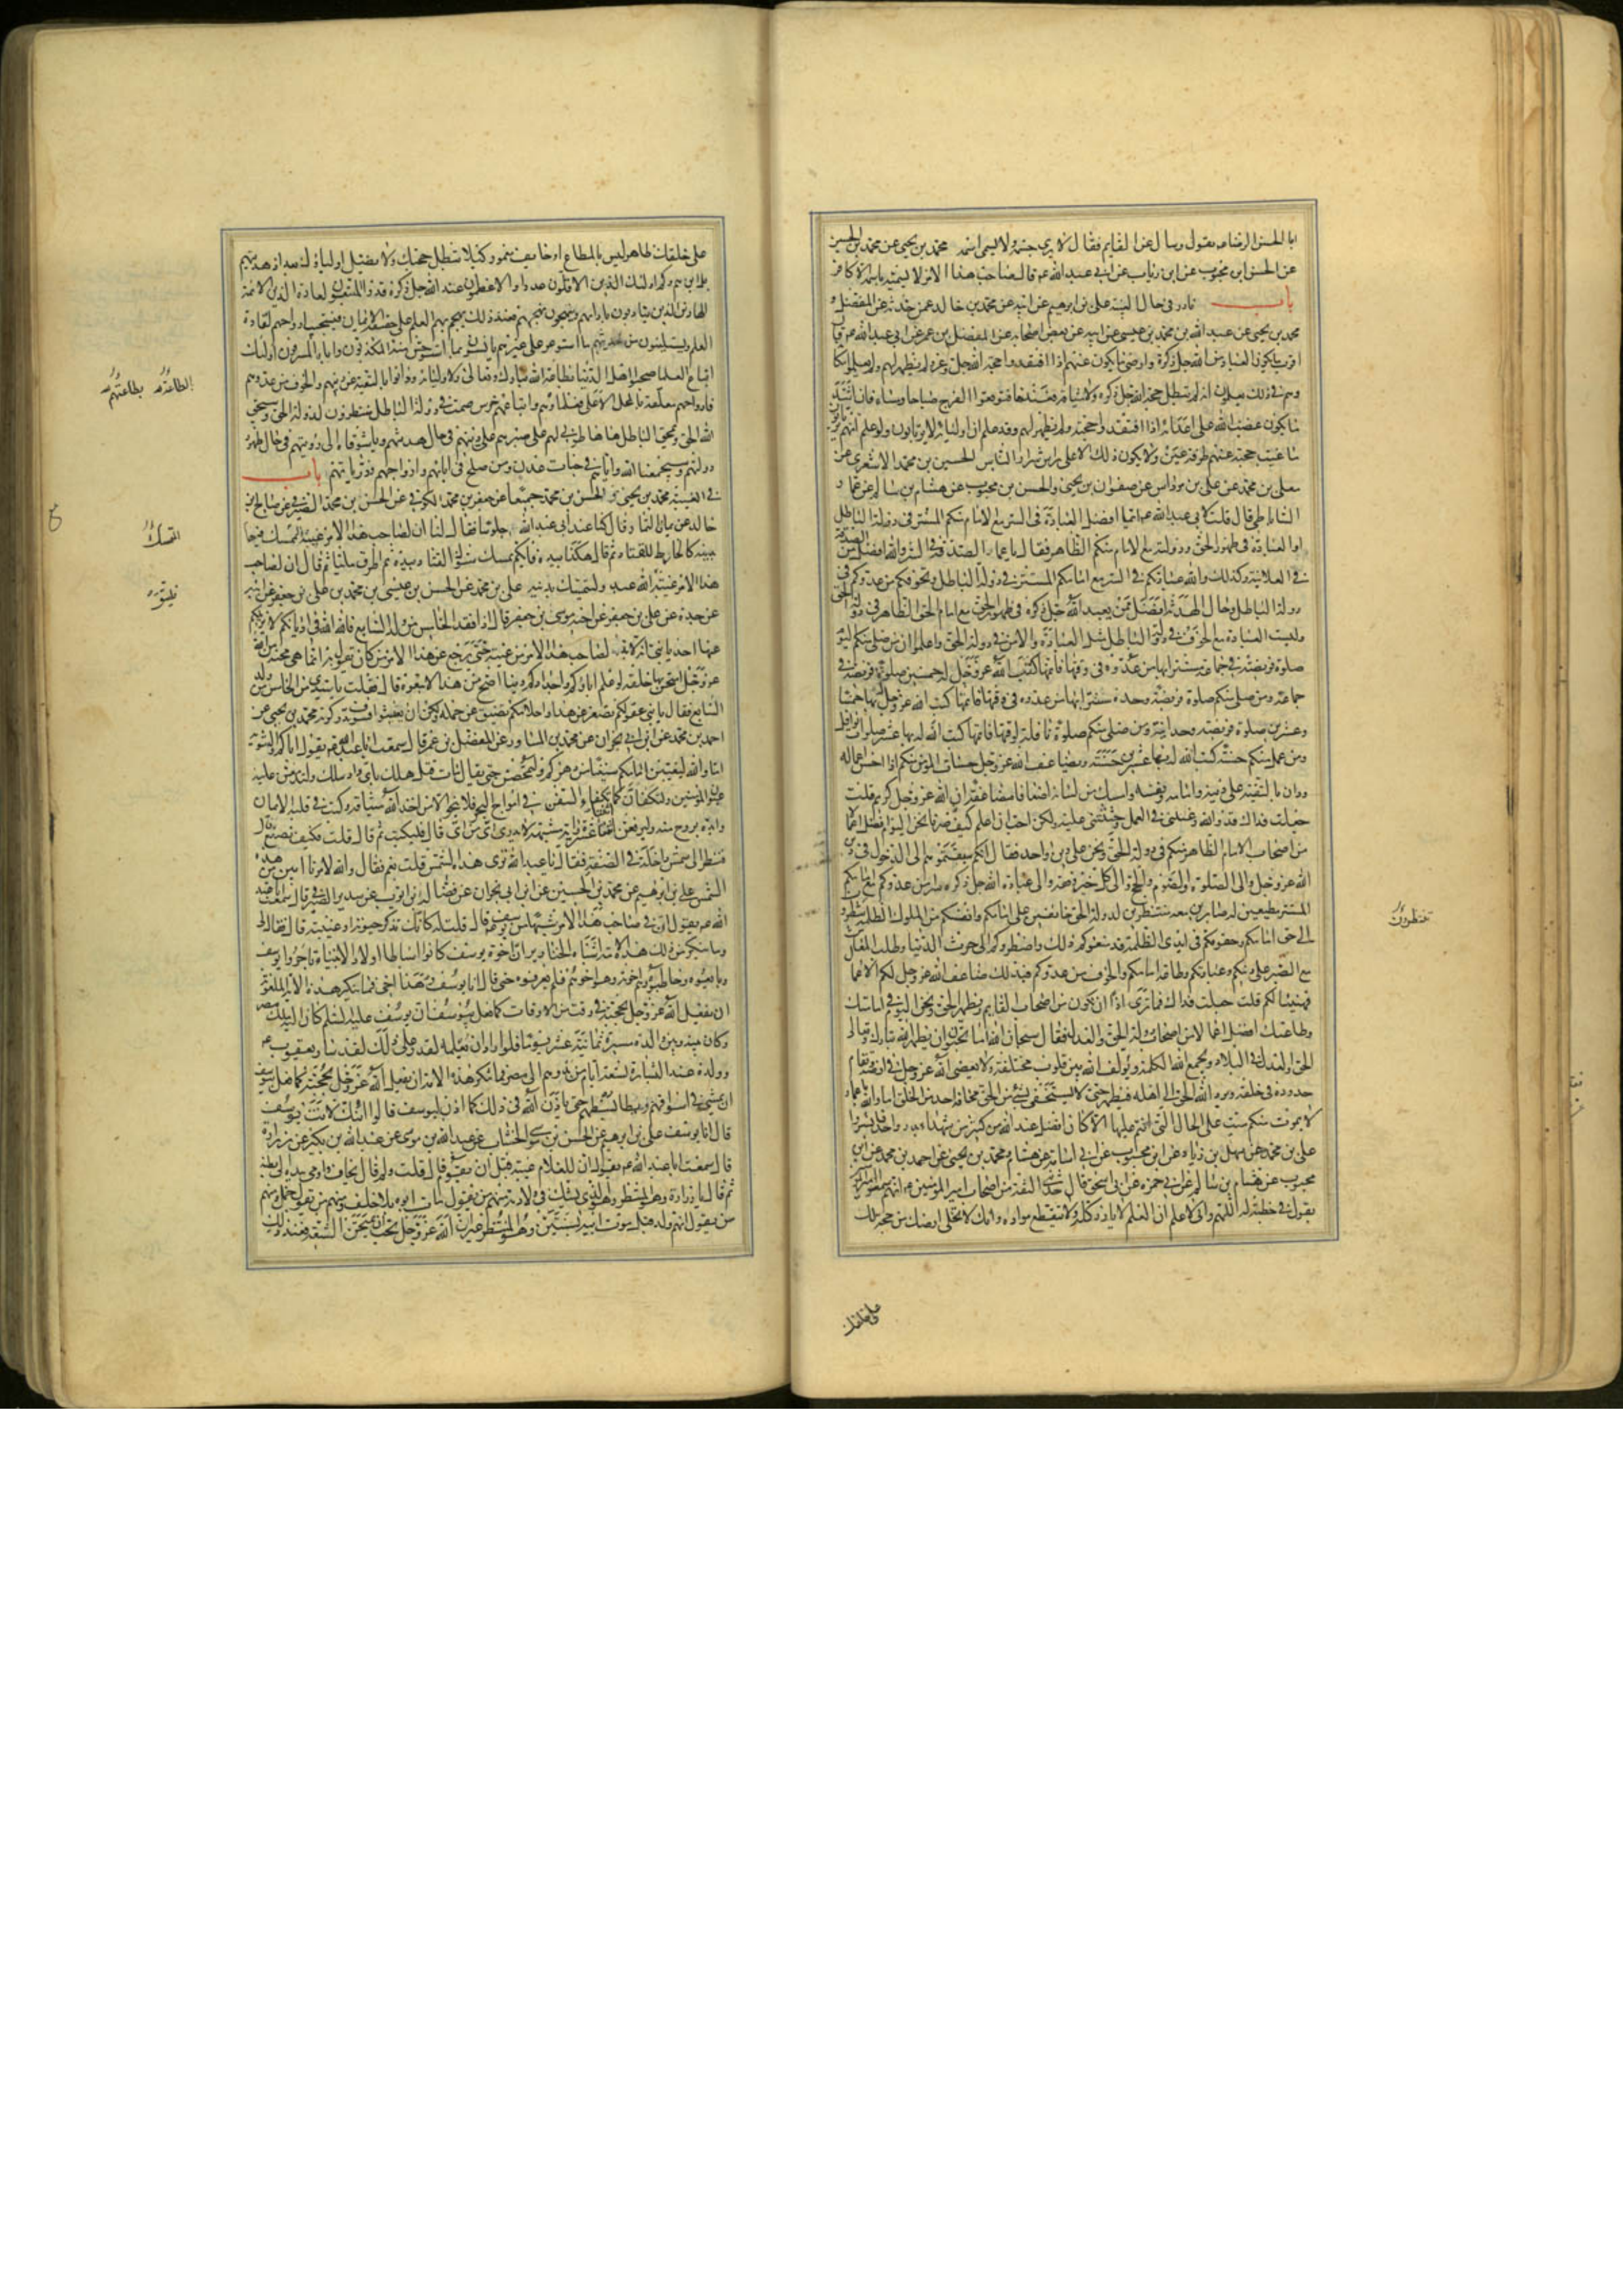 ابا الحسن الرضا عم يقول وسال عن القايم فقال لا يرى جسمه ولا يسمى اسمه محمد بن يحيى عن محمد بن الحسين
عن الحسن ابن محبوب عن ابن رياب عن ابى عبد الله عم قال صاحب هذا الامر لا يسميه باسمه الا كافر
باب نادر فى حال الغيبة على بن ابرهيم عن ابيه عن محمد بن خالد عمن حدثه عن المفضل و
محمد بن يحيى عن عبد الله بن محمد بن عيسى عن ابيه عن بعض اصحابه عن المفضل بن عمر عن ابى عبد الله عم قال
اقرب ما يكون العباد من الله جل ذكره وارضى ما يكون عنهم اذا افتقدوا حجة الله جل وعز ولم يظهر لهم ولم يعلموا مكانه
وهم فى ذلك يعلمون انه لم تبطل حجة الله جل ذكره ولا ميثاقه فعندها فتوقعوا الفرج صباحا ومساء فان اشد
ما يكون غضب الله على اعدائه اذا افتقدوا حجته ولم يظهر لهم وقد علم ان اولياءه لا يرتابون ولو علم انهم يرتابون
ما غيب حجته عنهم طرفة عين ولا يكون ذلك الا على راس شرار الناس الحسين بن محمد الاشعرى عن
معلى بن محمد عن على بن مرداس عن صفوان بن يحيى والحسن بن محبوب عن هشام بن سالم عن عمار
الساباطى قال قلت لابى عبد الله عم ايما افضل العبادة فى السر مع الامام منكم المستتر فى دولة الباطل
او العبادة فى ظهور الحق ودولته مع الامام منكم الظاهر فقال يا عمار الصدقة فى السر والله افضل من الصدقة
فى العلانية وكذلك والله عبادتكم فى السر مع امامكم المستتر فى دولة الباطل وتخوفكم من عدوكم فى
دولة الباطل وحال الهدنة افضل ممن يعبد الله جل ذكره فى ظهور الحق مع امام الحق الظاهر فى دولة الحق
وليست العبادة مع الخوف فى دولة الباطل مثل العبادة والامن فى دولة الحق واعلموا ان من صلى منكم اليوم
صلوة فريضة فى جماعة مستتر بها من عدوه فى وقتها فاتمها كتب الله عز وجل له خمسين صلوة فريضة فى
جماعة ومن صلى منكم صلوة فريضة وحده مستترا بها من عدوه فى وقتها فاتمها كتب الله عز وجل بها له خمسا
وعشرين صلوة فريضة وحدانية ومن صلى منكم صلوة نافلة لوقتها فاتمها كتب الله له بها عشر صلوات نوافل
ومن عمل منكم حسنة كتب الله له بها عشرين حسنة ويضاعف الله عز وجل حسنات المومن منكم اذا احسن اعماله
ودان بالتقية على دينه وامامه ونفسه وامسك من لسانه اضعافا مضاعفة ان الله عز وجل كريم قلت
جعلت فداك قد والله رغبتنى فى العمل وحثثتنى عليه ولكن احب ان اعلم كيف صرنا نحن اليوم افضل اعمالا
من اصحاب الامام الظاهر منكم فى دولة الحق ونحن على دين واحد فقال انكم سبقتموهم الى الدخول فى دين
الله عز وجل والى الصلوة والصوم والحج والى كل خير وفقه والى عبادة الله جل ذكره سرا من عدوكم مع امامكم
المستتر مطيعين له صابرين معه منتظرين لدولة الحق خائفين على امامكم وانفسكم من الملوك الظلمة تنظرون
الى حق امامكم وحقوقكم فى ايدى الظلمة قد منعوكم ذلك واضطروكم الى حرث الدنيا وطلب المعاش
مع الصبر على دينكم وعبادتكم وطاعة امامكم والخوف من عدوكم فبذلك ضاعف الله عز وجل لكم الاعمال
فهنيئا لكم قلت جعلت فداك فما ترى اذا ان نكون من اصحاب القايم ويظهر الحق ونحن اليوم فى امامتك
وطاعتك افضل اعمالا من اصحاب دولة الحق والعدل فقال سبحان الله اما تحبون ان يظهر الله تبارك وتعالى
الحق والعدل فى البلاد ويجمع الله الكلمة ويولف الله بين قلوب مختلفة ولا يعصى الله عز وجل فى ارضه وتقام
حدوده فى خلقه ويرد الله الحق الى اهله فيظهر حتى لا يستخفى بشىء من الحق مخافة احد من الخلق اما والله يا عمار
لا يموت منكم ميت على الحال التى انتم عليها الا كان افضل عند الله من كثير من شهداء بدر واحد فابشروا
على بن محمد عن سهل بن زياد عن ابن محبوب عن ابى اسامة عن هشام ومحمد بن يحيى عن احمد بن محمد عن ابن
محبوب عن هشام بن سالم عن ابى حمزه عن ابى اسحق قال حدثنى الثقة من اصحاب امير المومنين عم انهم سمعوا امير المومنين
يقول فى خطبة له اللهم وانى لاعلم ان العلم لا يارز كله ولا ينقطع مواده وانك لا تخلى ارضك من حجة لك
تنظرون
على خلقك
على خلقك ظاهر ليس بالمطاع او خايف مغمور كيلا تبطل حججك ولا يضل اولياؤك بعد اذ هديتهم
بل اين هم وكم اولئك الاقلون عددا والاعظمون عند الله جل ذكره قدرا المتبعون لقادة الدين الائمة
الهادين الذين يتادبون بادابهم وينهجون نهجهم فعند ذلك يهجم بهم العلم على حقيقة الايمان فيستجيب ارواحهم لقادة
العلم ويستلينون من حديثهم ما استوعر على غيرهم ويانسون بما استوحش منه المكذبون واباه المسرفون اولئك
اتباع العلماء صحبوا اهل الدنيا بطاعة الله تبارك وتعالى ولاوليائه ودانوا بالتقية عن دينهم والخوف من عدوهم
فارواحهم معلقة بالمحل الاعلى فعلماؤهم واتباعهم خرس صمت فى دولة الباطل منتظرون لدولة الحق وسيحق
الله الحق ويمحق الباطل ها ها طوبى لهم على صبرهم على دينهم فى حال هدنتهم ويا شوقاه الى رؤيتهم فى حال ظهور
دولتهم وسيجمعنا الله واياهم فى جنات عدن ومن صلح من ابائهم وازواجهم وذرياتهم باب
فى الغيبة محمد بن يحيى و الحسن بن محمد جميعا عن جعفر بن محمد الكوفى عن الحسن بن محمد الصيرفى عن صالح بن
خالد عن يمان التمار قال كنا عند ابى عبد الله جلوسا فقال لنا ان لصاحب هذا الامر غيبة المتمسك فيها
بدينه كالخارط للقتاد ثم قال هكذا بيده فايكم يمسك شوك القتاد بيده ثم اطرق مليا ثم قال ان لصاحب
هذا الامر غيبة فليتق الله عبد وليتمسك بدينه على بن محمد عن الحسن بن عيسى بن محمد بن على بن جعفر عن ابيه
عن جده عن على بن جعفر عن اخيه موسى بن جعفر قال اذا فقد الخامس من ولد السابع فالله الله فى اديانكم لا يزيلكم
عنها احد يا بنى انه لابد لصاحب هذا الامر من غيبة حتى يرجع عن هذا الامر من كان يقول به انما هى محنة من الله
عز وجل امتحن بها خلقه لو علم اباؤكم واجدادكم دينا اصح من هذا لاتبعوه قال فقلت يا سيدى من الخامس من ولد
السابع فقال يا بنى عقولكم تصغر عن هذا واحلامكم تضيق عن حمله ولكن ان تعيشوا فسوف تدركونه محمد بن يحيى عن
احمد بن محمد عن ابن ابى نجران عن محمد بن المساور عن المفضل بن عمر قال سمعت ابا عبد الله عم يقول اياكم والتنويه
اما والله ليغيبن امامكم سنينا من دهركم ولتمحصن حتى يقال مات قتل هلك باى واد سلك ولتدمعن عليه
عيون المومنين ولتكفان كما تكفا السفن فى امواج البحر فلا ينجو الا من اخذ الله ميثاقه وكتب فى قلبه الايمان
وايده بروح منه ولترفعن اثنتا عشرة راية مشتبهة لا يدرى اى من اى قال فبكيت ثم قال قلت فكيف نصنع قال
فنظر الى شمس داخلة فى الصفة فقال يا با عبد الله ترى هذه الشمس قلت نعم فقال والله لامرنا ابين من هذه
الشمس على بن ابرهيم عن محمد بن الحسين عن ابن ابى نجران عن فضالة بن ايوب عن سدير الصيرفى قال سمعت ابا عبد
الله عم يقول ان فى صاحب هذا الامر شبها من يوسف عم قال قلت له كانك تذكر حيوته او غيبته قال فقال لى
وما ينكر من ذلك هذه الامة اشباه الخنازير ان اخوة يوسف كانوا اسباطا اولاد الانبياء تاجروا يوسف
وبايعوه وخاطبوه وهم اخوته وهو اخوهم فلم يعرفوه حتى قال انا يوسف وهذا اخى فما تنكر هذه الامة الملعونة
ان يفعل الله عز وجل بحجته فى وقت من الاوقات كما فعل بيوسف ان يوسف عليه السلم كان اليه ملك مصر
وكان بينه وبين والده مسيرة ثمانية عشر يوما فلو اراد ان يعلمه لقدر على ذلك لقد سار يعقوب عم
وولده عند البشارة تسعة ايام من بدوهم الى مصر فما تنكر هذه الامة ان يفعل الله عز وجل بحجته كما فعل بيوسف
ان يمشى فى اسواقهم ويطا بسطهم حتى ياذن الله فى ذلك كما اذن ليوسف قالوا ائنك لانت يوسف
قال انا يوسف على بن ابرهيم عن الحسن بن موسى الخشاب عن عبد الله بن موسى عن عبد الله بن بكير عن زرارة
قال سمعت ابا عبد الله عم يقول ان للغلام غيبة قبل ان يقوم قال قلت ولم قال يخاف واومى بيده الى بطنه
ثم قال يا زرارة وهو المنتظر وهو الذى يشك فى ولادته منهم من يقول مات ابوه بلا خلف ومنهم من يقول حمل ومنهم
من يقول انه ولد قبل موت ابيه بسنتين وهو المنتظر غير ان الله عز وجل يحب ان يمتحن الشيعة فعند ذلك